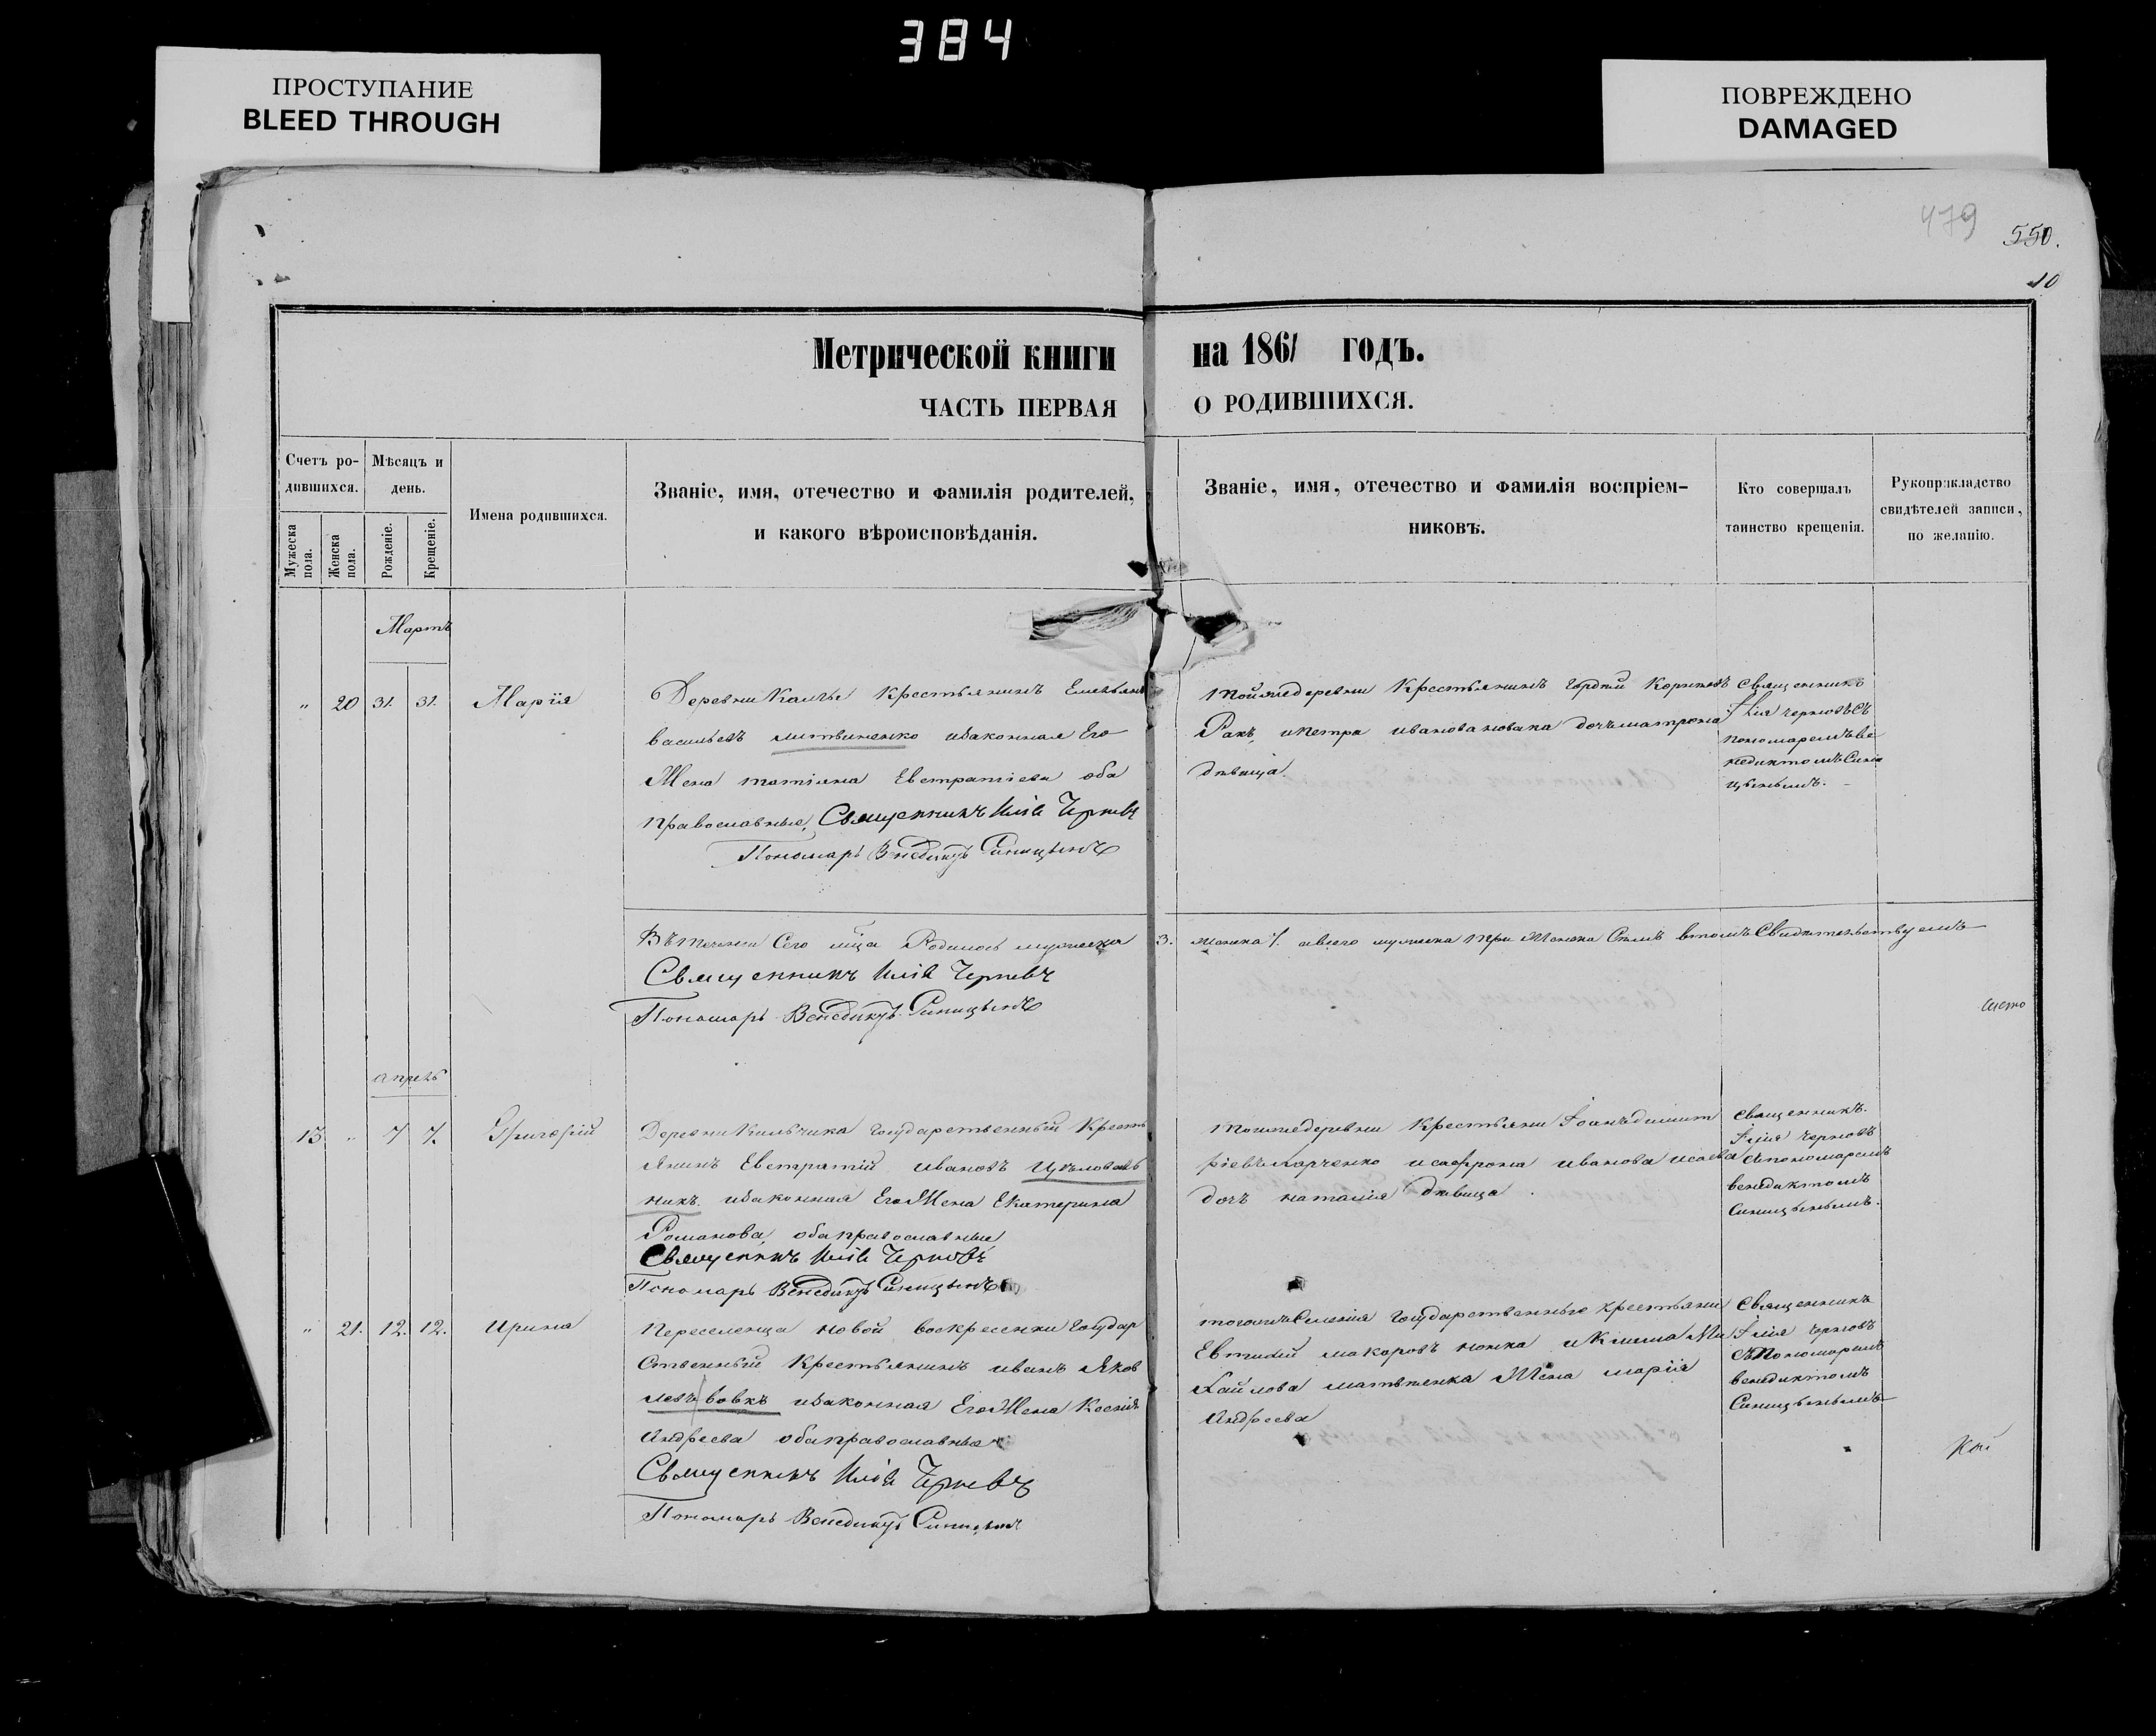 384
ПРОСТУПАНИЕ
BLEED THROUGH
ПОВРЕЖДЕНО
DAMAGED
479
550.
10
Метрической книги на 1861 годъ.
ЧАСТЬ ПЕРВАЯ О РОДИВШИХСЯ.
Счетъ ро-
дившихся.
Мужеска пола.
Женска пола.
Мѣсяцъ и
день.
Рожденіе.
Крещеніе.
Имена родившихся.
Званіе, имя, отечество и фамилія родителей,
и какого вѣроисповѣданія.
Званіе, имя, отечество и фамилія воспріем-
никовъ.
Кто совершалъ
таинство крещенія.
Рукоприкладство
свидѣтелей записи,
по желанію.
Мартъ
" 20 31. 31. Марія
Деревни Крестьянинъ Емельянъ
васильевъ литвиненко изаконная Его
Жена татіяна Евстратіева оба
православные, Священникъ Илія Черновъ
Пономарь Венедиктъ Синицынъ
тойжедеревни Крестьянинъ
Ракъ, ипетра иванова дочьматрона
дѣвица.
Священникъ
Илія черновъ съ
пономаремъ Ве
недиктомъ Сини
цынымъ.
Втечении Сего мца Родилось мужеска 3. женска 7. авсего мужска три Женска Семь втомъ Свидетельствуемъ
Священникъ Илія Черновъ
Пономарь Венедиктъ Синицынъ
апрель
13 " 7 7. Григорій
Деревни Кильчика государственный Кресть
Янинъ Евстратій ивановъ Цѣловаль
никъ. изаконная ЕгоЖена Екатерина
Романова, обаправославные
Священникъ Илія Черновъ
Пономарь Венедиктъ Синицынъ
тоижедеревни Крестьяни
ріевъ Харченко исафрона иванова
дочь наталія дѣвица.
священникъ.
Илія черновъ
съпономаремъ
венедиктомъ
Синицынымъ.
" 21. 12. 12. Ирина
Переселенца новой воскресенки Государ
Ственный Крестьянинъ иванъ Яков
левъ вовкъ изаконная ЕгоЖена Ксенія
Андреева обаправославные
Священникъ Илія Черновъ
Пономарь Венедиктъ Синицынъ
тогожъ Селенія государственные крестьяни
Евтихій макаровъ и Ми
хайлова матвѣенка Жена марія
Андреева
Священникъ
Илія черновъ
съ Пономаремъ
венедиктомъ
Синицынымъ